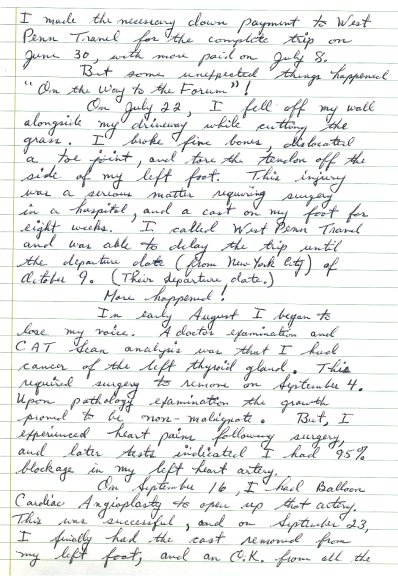 I made the necessary down payment to West
Penn Travel for the complete trip on
June 30, with more paid on July 8.
But some unexpected things happened
"On the Way to the Forum"!
On July 22, I fell off my wall
alongside my driveway while cutting the
grass. I broke five bones, dislocated
a toe joint, and tore the tendon off the
side of my left foot. This injury
was a serious matter requiring surgery
in a hospital, and a cast on my foot for
eight weeks. I called West Penn Travel
and was able to delay the trip until
the departure date (from New York City) of
October 9. (Their departure date.)
More happened!
In early August I began to
lose my voice. A doctor examination and
CAT Scan analysis was that I had
cancer of the left thyroid gland. This
required surgery to remove on September 4.
Upon pathology examination the growth
proved to be non-malignate. But, I
experienced heart pains following surgery,
and later tests indicated I had 95%
blockage in my left heart artery.
On September 16, I had Balloon
Cardiac Angioplasty to open up that artery.
This was successful, and on September 23,
I finally had the cast removed from
my left foot, and an O.K. from all the